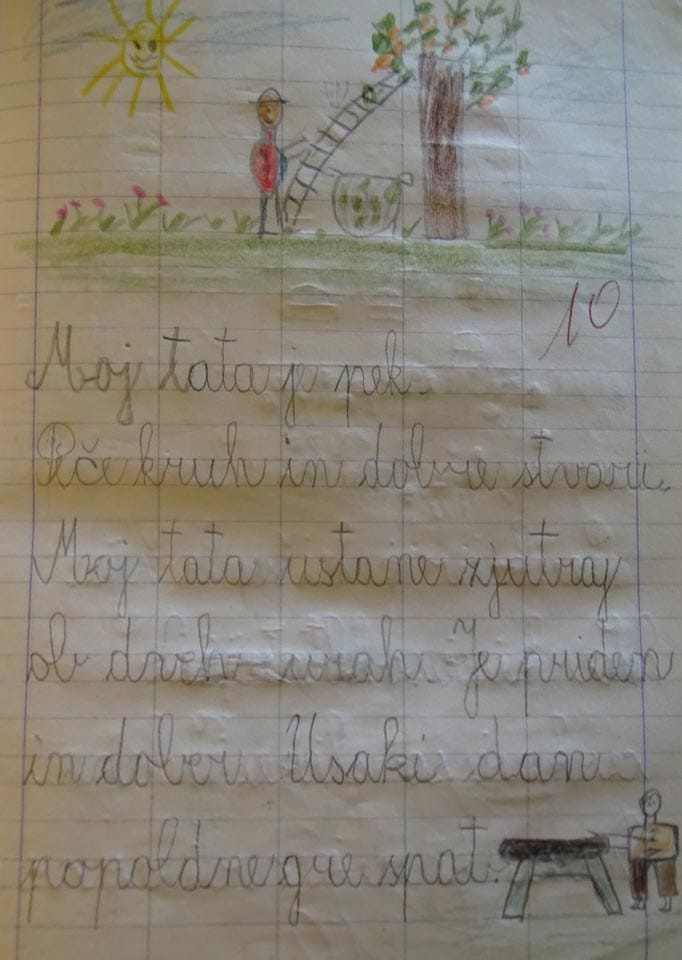 10
Moj tata je pek.
Peče kruh in dobre stvari.
Moj tata ustane zjutraj
ob dveh urah. Je priden
in dober. Usaki dan
popoldne gre spat.